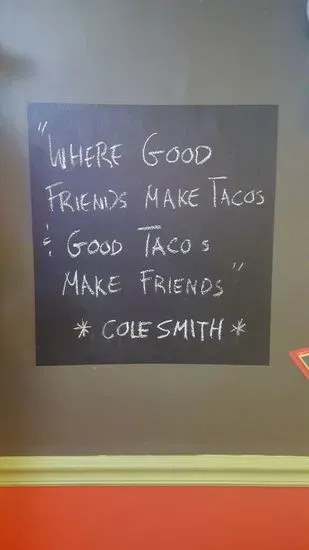 "WHERE GOOD
FRIENDS MAKE TACOS
& GOOD TACOS
MAKE FRIENDS"
* COLE SMITH *